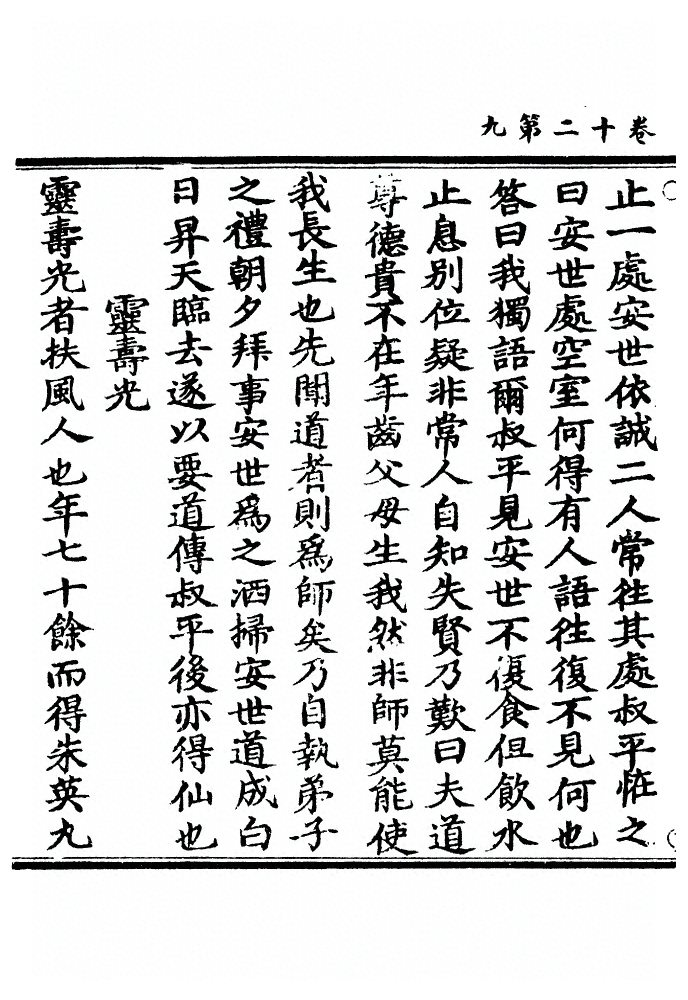 卷十二第九
止一處安世依誠二人常往其處叔平恠之
曰安世處空室何得有人語往復不見何也
答曰我獨語爾叔平見安世不復食但飲水
止息別位疑非常人自知失賢乃歎曰夫道
尊德貴不在年齒父母生我然非師莫能使
我長生也先聞道者則爲師矣乃自執弟子
之禮朝夕拜事安世爲之洒掃安世道成白
日昇天臨去遂以要道傳叔平後亦得仙也
靈壽光
靈壽光者扶風人也年七十餘而得朱英丸